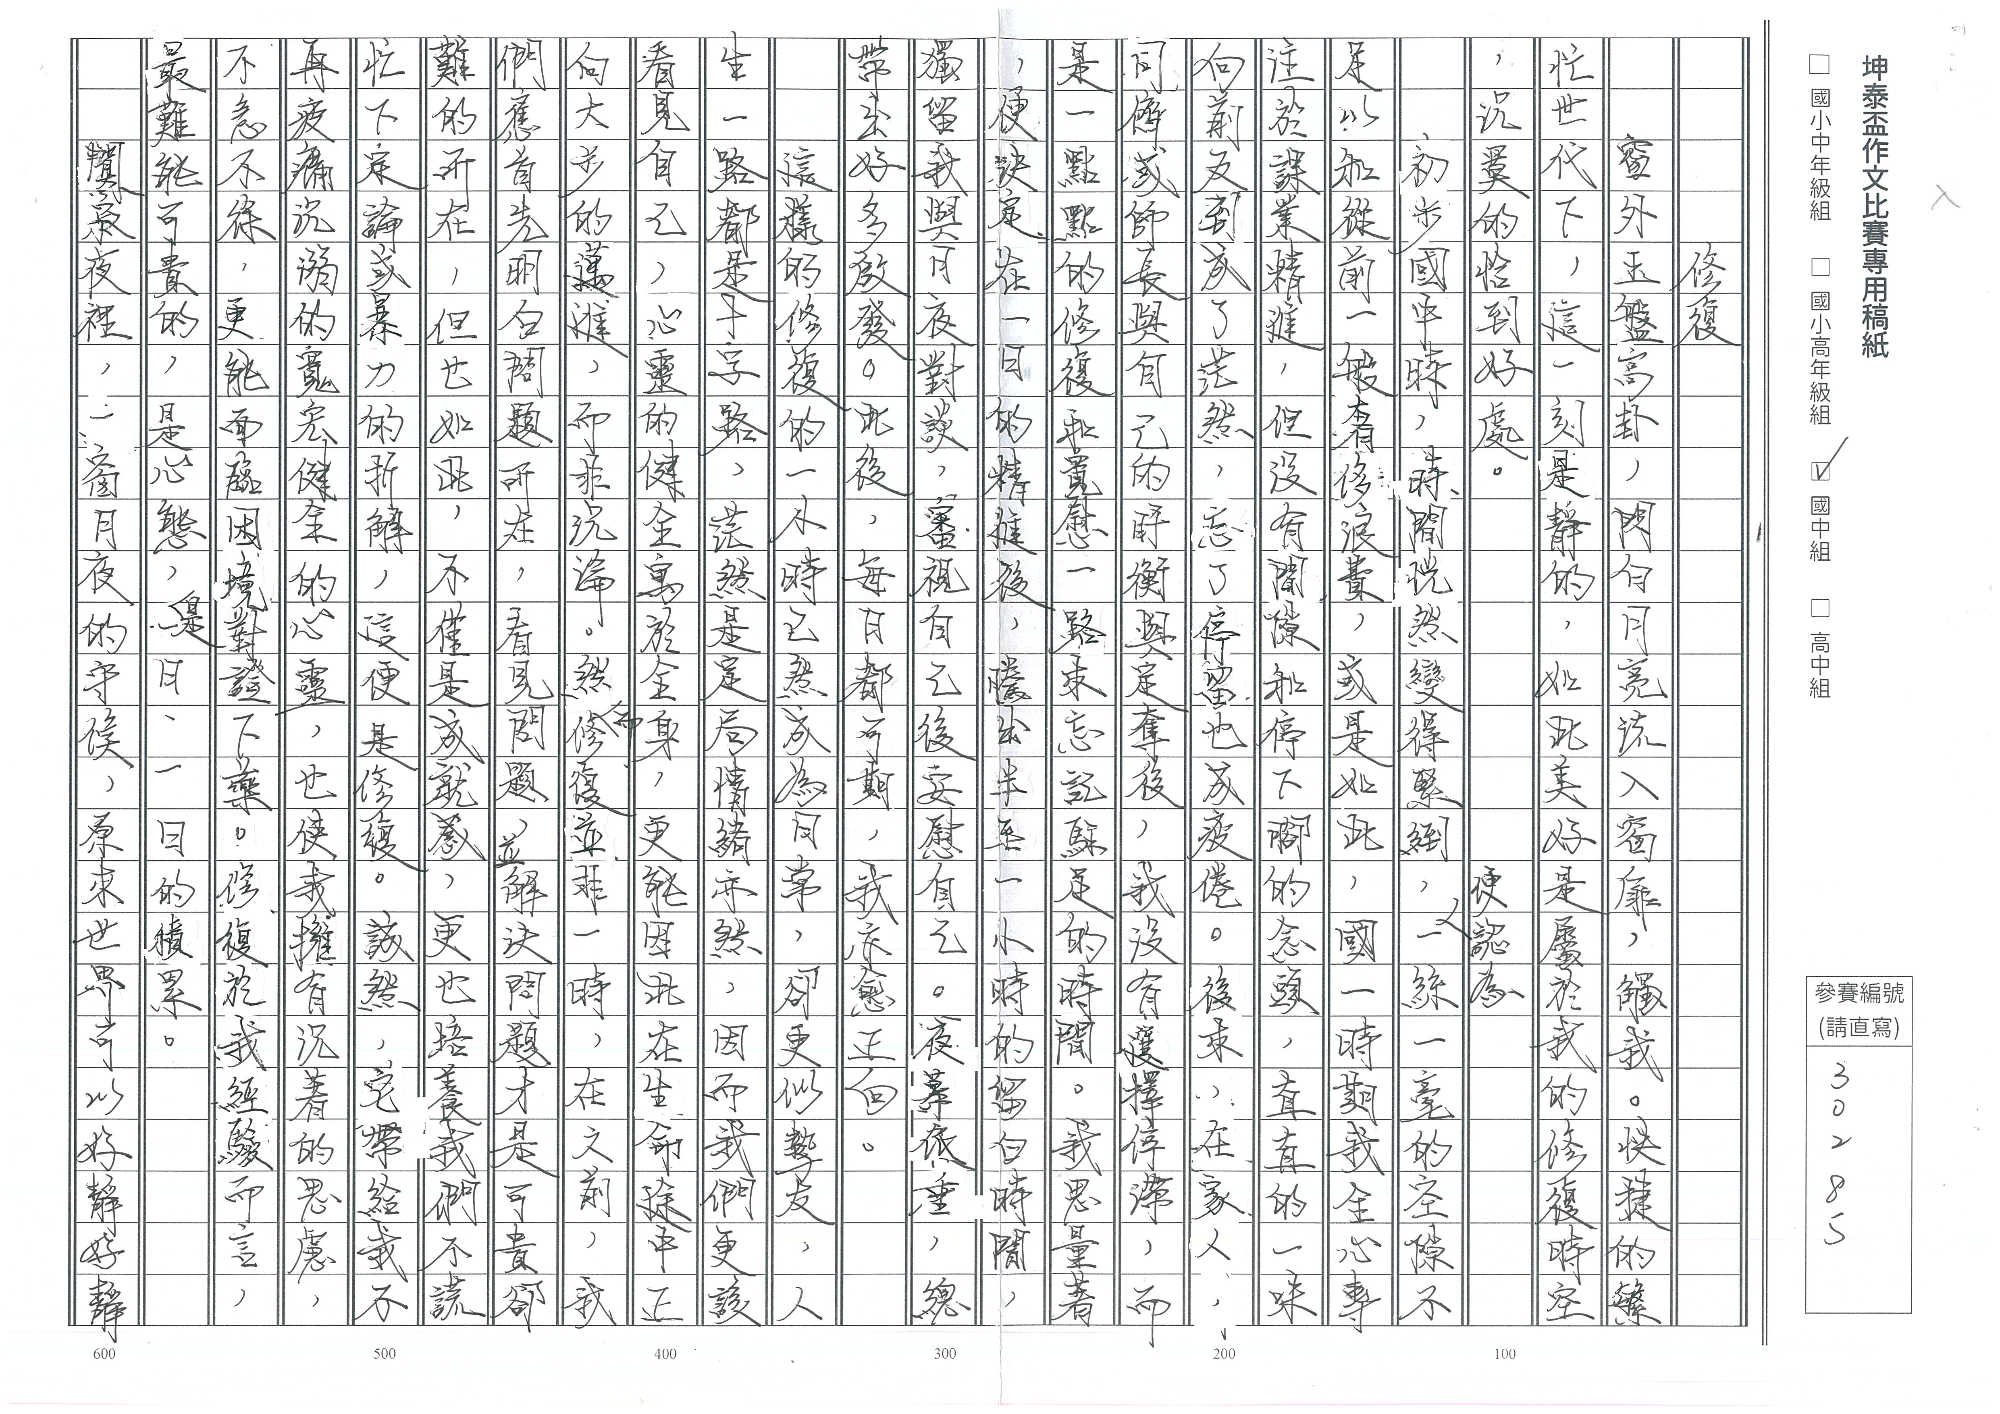 坤泰盃作文比賽專用稿紙
□ 國小中年級組 □ 國小高年級組 ☑ 國中組 □ 高中組
參賽編號
(請直寫)
30285
修復
窗外玉盤高卦,閃白月亮流入窗扉,觸我。快捷的繁
忙世代下,這一刻是靜的,如此美好是屬於我的修復時空
,沉奠的恰到好處。
初步國中時,時間恍然變得緊綳,便認為一絲一毫的空隙不
足以和從前一般奢侈浪費,或是如此,國一時期我全心專
注於課業精進,但沒有閒隙和停下腳的念頭,直直的一味
向前反到成了茫然,忘了停留也成疲倦。後來,在家人,
同儕或師長與自己的盱衡與定奪後,我沒有選擇停滯,而
是一點點的修復和寬慰一路來忘記駐足的時間。我思量著
,便決定在一日的精進後,騰出半至一小時的留白時間,
獨留我與月夜對談,審視自己後安慰自己。夜幕依垂,總
帶出好多啟發。此後,每日都可期,我亦愈正向。
這樣的修復的一小時已然成為日常,卻更似摯友,人
生一路都是十字路,茫然是定局情緒亦然,因而我們更該
看見自己,心靈的健全寓於全身,更能因此在生命途中正
向大步的邁進,而非沉淪。然而修復並非一時,在文前,我
們應首先明白問題所在,看見問題,並解決問題才是可貴卻
難的所在,但也如此,不僅是成就感,更也培養我們不謊
忙下定論或暴力的折解,這便是修復。誠然,它帶給我不
再疲痛沉溺的寬宏健全的心靈,也使我擁有沉著的思慮,
不急不徐,更能面臨困境對證下藥。修復於我經驗而言,
最難能可貴的,是心態,是一日、一日的積累。
闃寂夜裡,一窗月夜的守候,原來世界可以好靜好靜
100
200
300
400
500
600